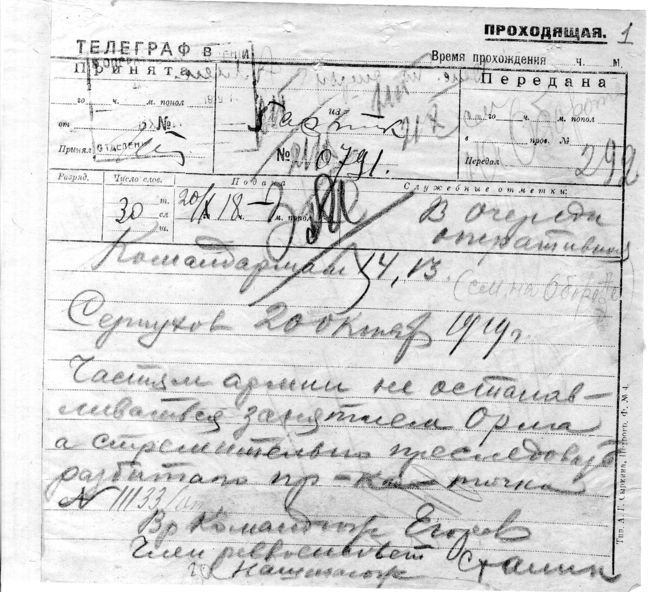 ПРОХОДЯЩАЯ. 1
ТЕЛЕГРАФ В
Время прохождения ч. м.
Принята
го ч. м. попол
от №
Принял
из
№ 0791.
Передана
го ч. м. попол
в пров. №
Передал 292
Разряд. Число слов. Подана Служебные отметки:
30 20/X 18 м. попол
В очереди
оперативной
Командармам 14, 13.
(см. на обороте)
Серпухов 20 октяб 1919г.
Частям армии не останав-
ливаться занятием Орла
а стремительно преследовать
разбитого пр-ка точка
№ 11133/оп
Вр Командюж Егоров
Член реввоенсовет Сталин
Наштаюж
Тип. А. Г. Сыркина, Петрогр. Ф. № 4.